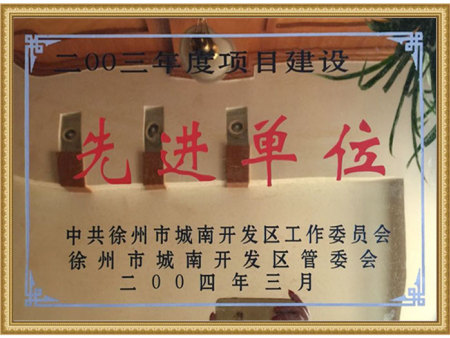 二00三年度项目建设
先进单位
中共徐州市城南开发区工作委员会
徐州市城南开发区管委会
二00四年三月